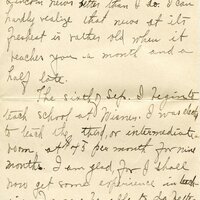 Lincoln news better than I do. I can
hardly realize that news at its
freshest is rather old when it
reaches you a month and a
half late.
The sixth of Sept. I begin to
teach school at Wisner. I was
to teach the third, or intermediate
room, at $45 per month for nine
months. I am glad, for I shall
now get some experience in teach